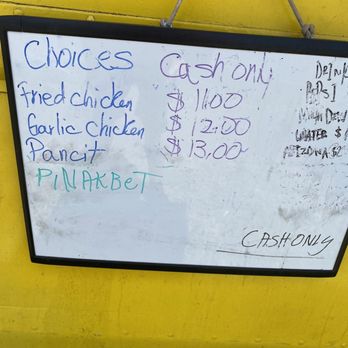 Choices Cash only
Fried chicken $ 11.00
Garlic chicken $ 12.00
Pancit $ 13.00
PINAKBET
DRINK
PEPSI
WATER $
CASH ONLY